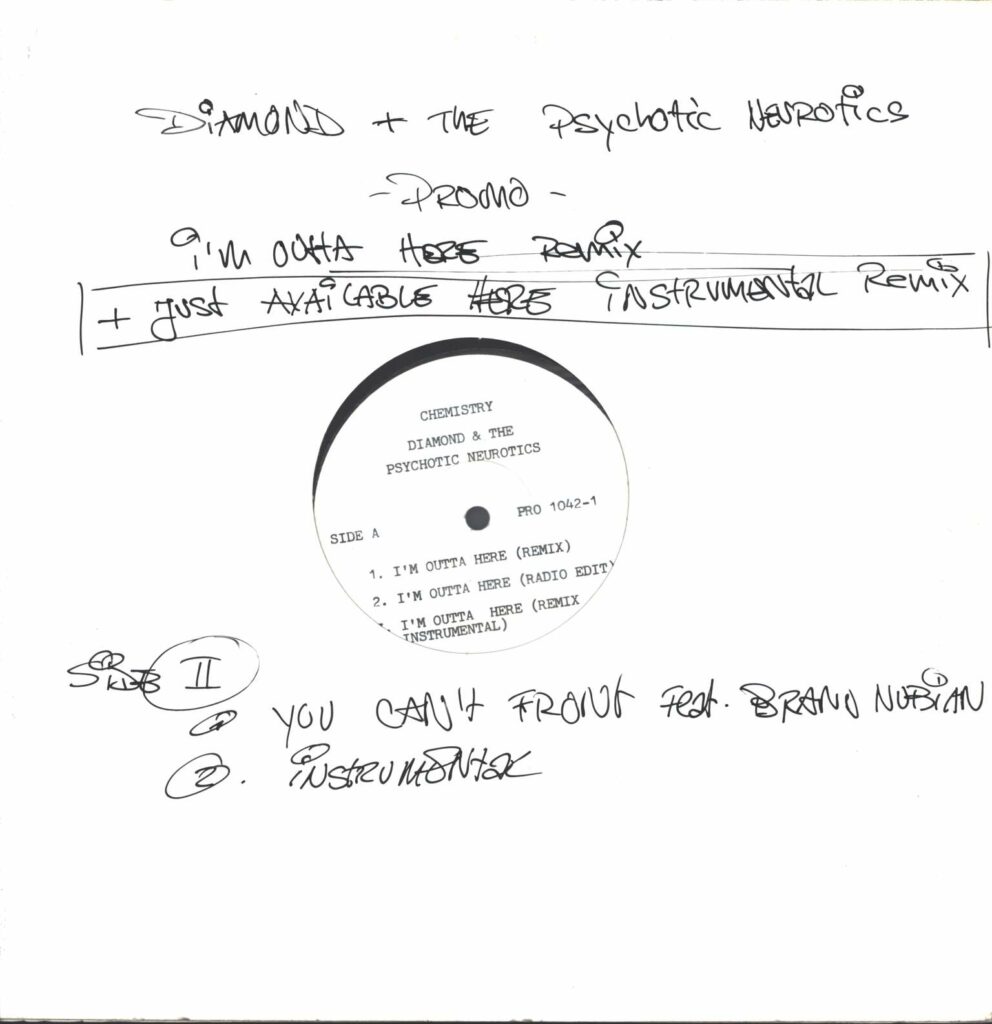 DiAMOND + THE Psychotic NEUROtics
- PROMO -
i'm OUttA HERE Remix
+ Just AVAILABLE HERE iNStRUMENtaL Remix
CHEMISTRY
DIAMOND & THE
PSYCHOTIC NEUROTICS
SIDE A
PRO 1042-1
1. I'M OUTTA HERE (REMIX)
2. I'M OUTTA HERE (RADIO EDIT)
I'M OUTTA HERE (REMIX
INSTRUMENTAL)
SIDE II
1 YOU CAN't FRONt Feat. BRAND NUBiAN
2. iNStRUMENtaL